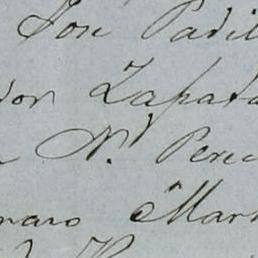 José Padil
dor Zapata
N. Pere
naro Mar